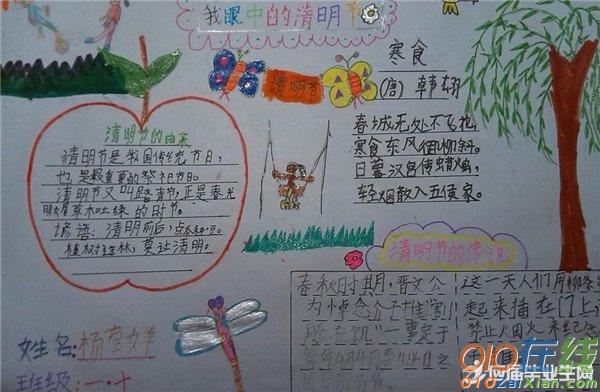 我眼中的清明节
清明节
寒食
(唐) 韩翃
春城无处不飞花
寒食东风御柳斜。
日暮汉宫传蜡烛,
轻烟散入五侯家。
清明节的由来
清明节是我国传统节日,
也是最重要的祭祀节日
清明节又叫踏青节,正是春光
明媚草木吐绿的时节。
谚语:清明前后,点瓜种豆。
植树造林,莫过清明。
清明节的传说
春秋时期,晋文公
为悼念介子推"割
股充饥"一事定于
这一天人们用柳条
起来插在门上
禁止烟火来纪念
姓名:杨
班级:一·十
910在线
910zaixian.com
应届毕业生网